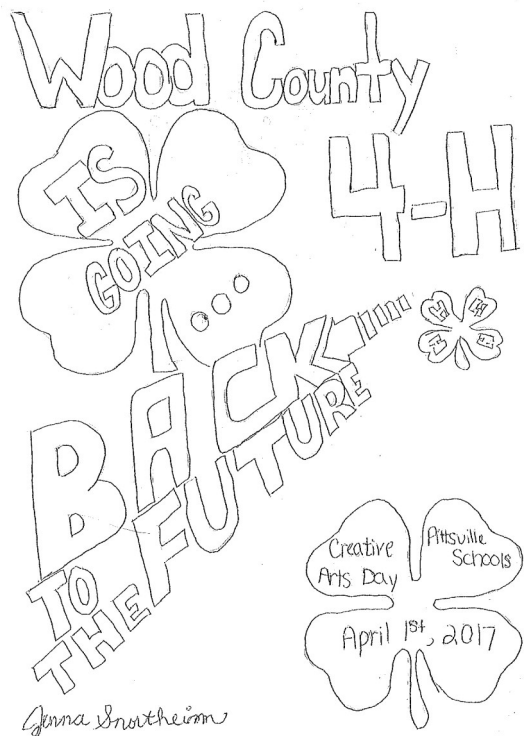 Wood County
4-H
IS
GOING
...
BACK
TO THE FUTURE
H H
H H
Creative
Arts Day
Pittsville
Schools
April 1st, 2017
Jenna